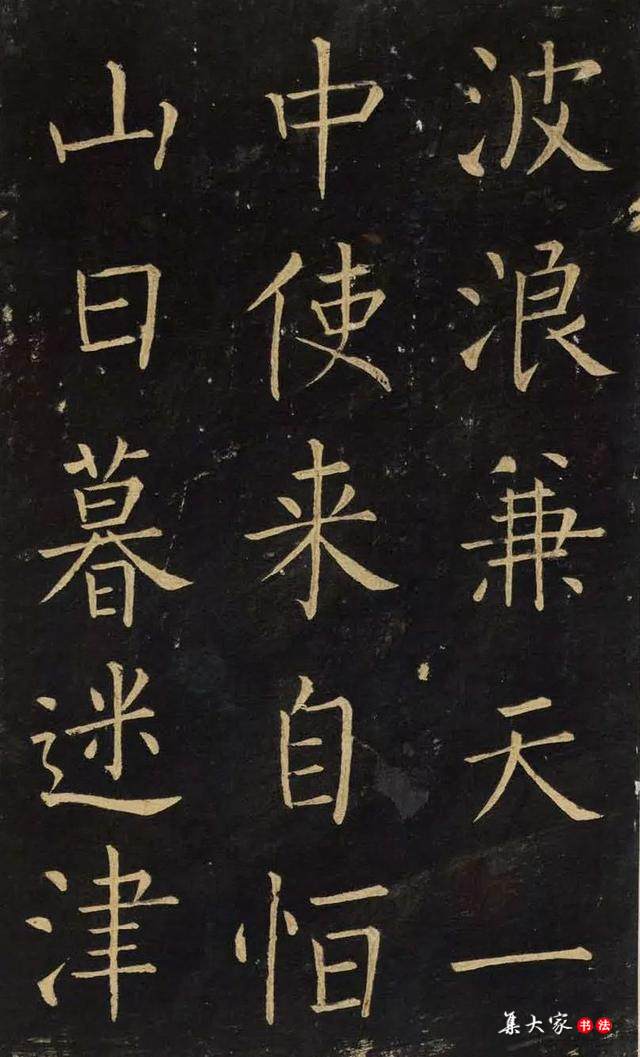 波浪兼天一
中使来自恒
山日暮迷津
集大家书法